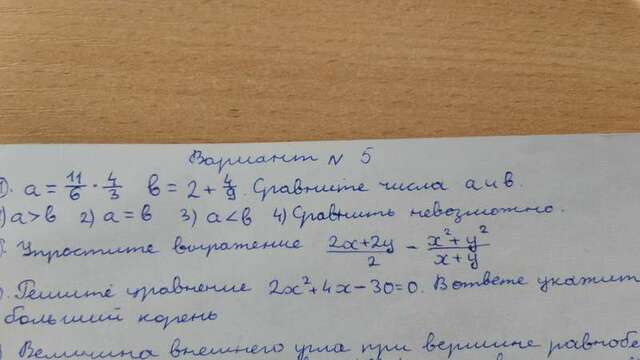 Вариант N 5
1). a = 11/6 · 4/3 b = 2 + 4/9. Сравните числа a и b.
1) a > b 2) a = b 3) a < b 4) Сравнить невозможно.
). Упростите выражение (2x+2y)/2 - (x²+y²)/(x+y)
). Решите уравнение 2x²+4x-30=0. В ответе укажит
больший корень
) Величина внешнего угла при вершине равнобе